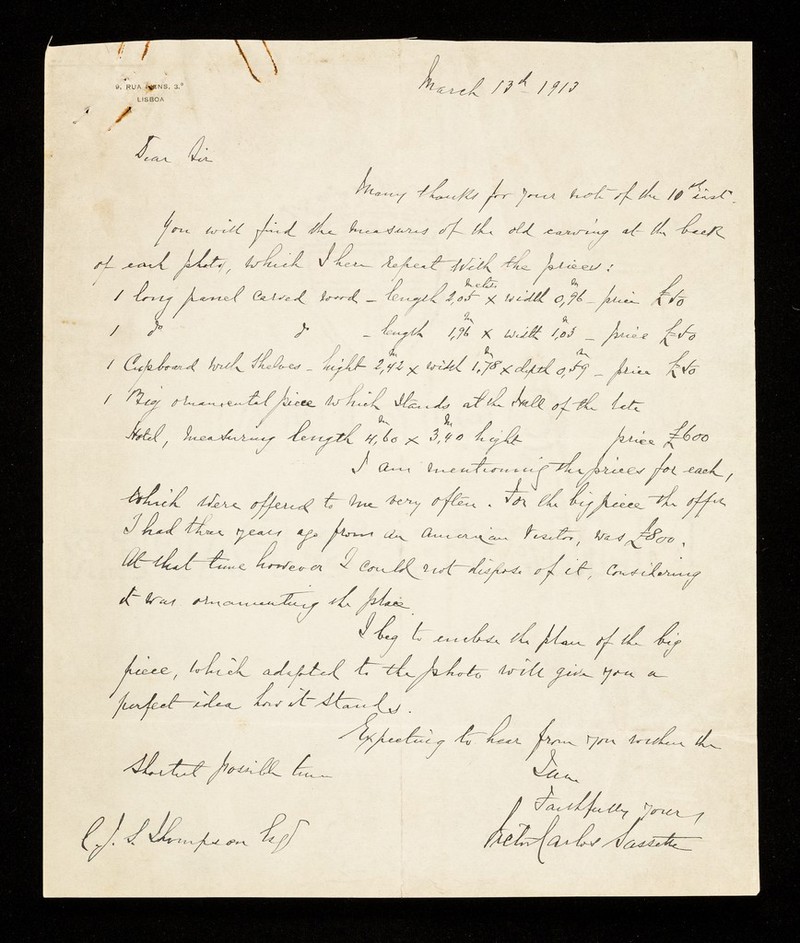 9, RUA IVENS, 3.º
LISBOA
March 13th 1913
Dear Sir
Many thanks for your note of the 10th inst.
You will find the measures of the old carving at the back
of each photo, which I here repeat with the prices:
1 long panel carved wood - length 2,05 metres x width 0,96 m - price £50
1 do do - length 1,96 m x width 1,03 m - price £50
1 Cupboard with shelves - hight 2,42 m x width 1,78 m x depth 0,59 m - price £50
1 Big ornamental piece which stands at the Hall of the late
Hotel, measuring length 4,60 m x 3,40 m hight price £600
I am mentionning the prices for each,
which were offered to me very often. For the big piece the offer
I had three years ago from an American Visitor, was £800.
At that time however I could not dispose of it, considering
it was ornamenting the place.
I beg to enclose the plan of the big
piece, which adapted to the photo will give you a
perfect idea how it stands.
Expecting to hear from you within the
shortest possible time
I am
Faithfully yours,
Victor Carlos Sassetti
C. J. S. Thompson Esq